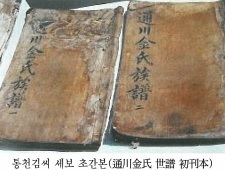 通川金氏族譜 一
通川金氏族譜 二
통천김씨 세보 초간본(通川金氏 世譜 初刊本)